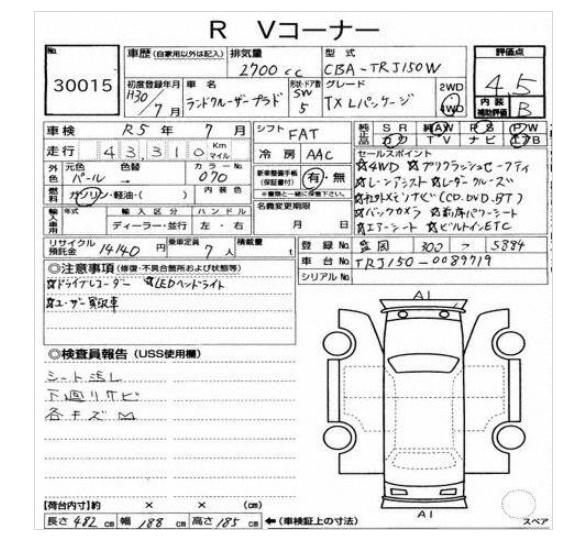 R Vコーナー
No. 30015
車歴(自家用以外は記入) 排気量 2700cc 型式 CBA-TRJ150W 評価点 4.5
初度登録年月 H30/7月 車名 ランドクルーザープラド 形状・ドア数 SW 5 グレード TX Lパッケージ 2WD 4WD 内装補助評価 B
車検 R5年7月 シフト FAT 純正品 SR 純AW PS PW
走行 43,310 Km マイル 冷房 AAC カワ TV ナビ エアB
外色 元色 パール 色替 → カラーNo. 070 新車整備手帳(保証書付) 有・無
燃料 ガソリン・軽油・( ) 内装色
輸入車 年式 輸入区分 ディーラー・並行 ハンドル 左・右 名義変更期限 月 日
セールスポイント
☆4WD ☆プリクラッシュセーフティ
☆レーンアシスト ☆レーダークルーズ
☆社外メモリナビ(CD.DVD.BT)
☆バックカメラ ☆前席パワーシート
☆エアーシート ☆ビルトインETC
リサイクル預託金 14140円 乗車定員 7人 積載量 t
登録No. 盛岡 300 フ 5884
車台No. TRJ150-0089719
シリアルNo.
◎注意事項(修復・不具合箇所および状態等)
☆ドライブレコーダー ☆LEDヘッドライト
☆ユーザー買取車
◎検査員報告(USS使用欄)
シート汚レ
下廻リサビ
各キズ
A1
A1
スペア
【荷台内寸】約 × × (cm)
長さ 482 cm 幅 188 cm 高さ 185 cm ←(車検証上の寸法)